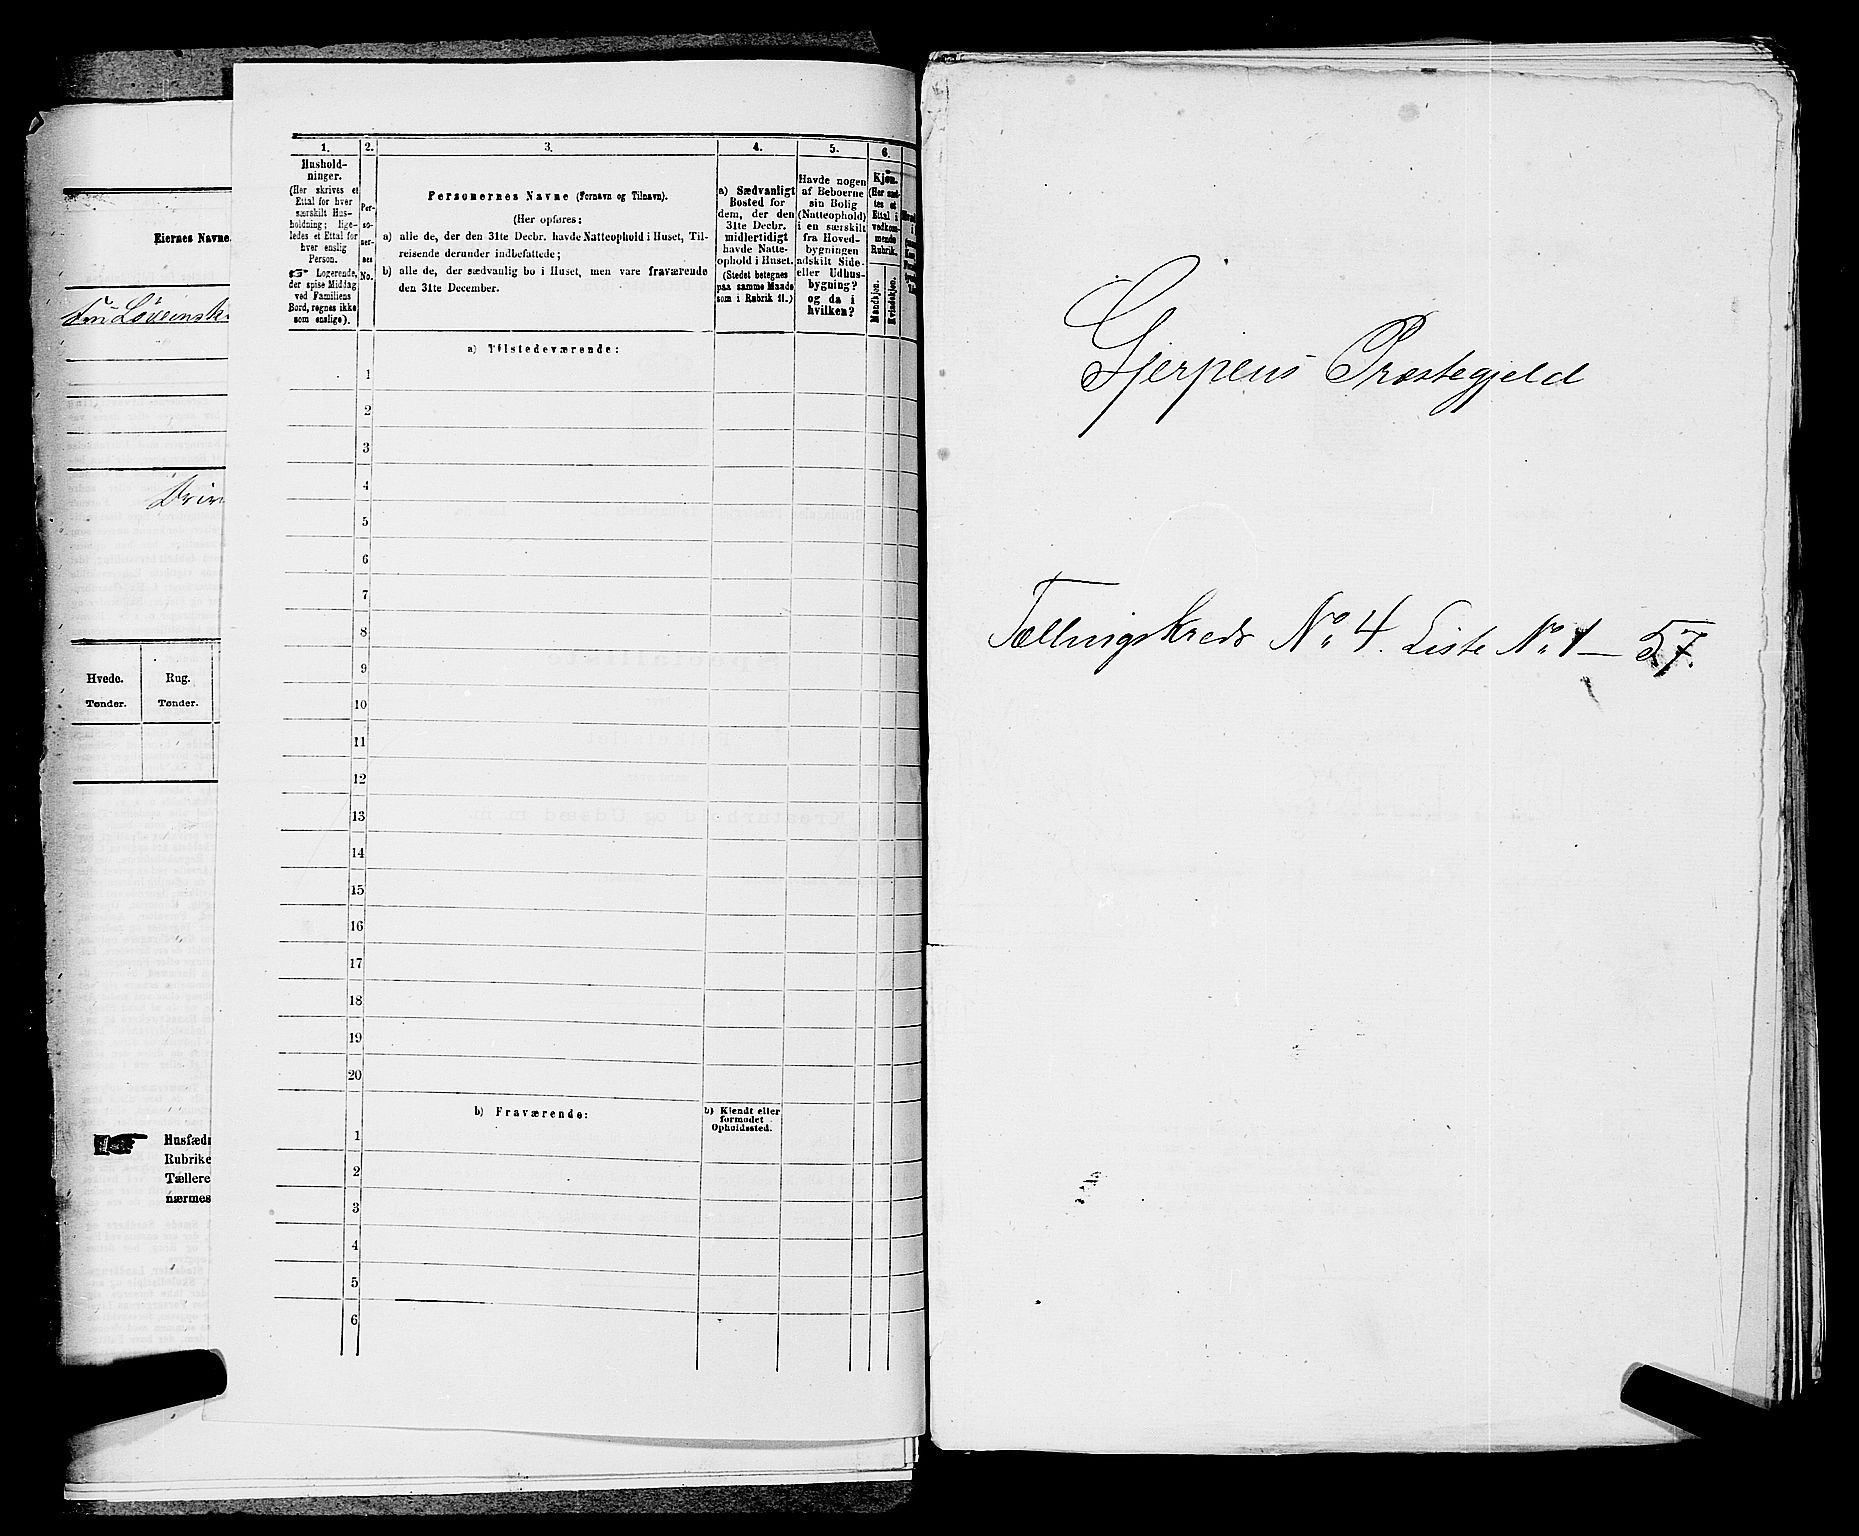 Eiernes Navne.
Hvede.
Tønder.
Rug.
Tønder.
Husfædr
Rubrike
Tællere
nærmes
1.
Hushold-
ninger.
(Her skrives et
Ettal for hver
særskilt Hus-
holdning; lige-
ledes et Ettal for
hver enslig
Person.
☞ Logerende,
der spise Middag
ved Familiens
Bord, regnes ikke
som enslige).
2.
Per-
so-
ner-
nes
No.
3.
Personernes Navne (Fornavn og Tilnavn).
(Her opføres;
a) alle de, der den 31te Decbr. havde Natteophold i Huset, Til-
reisende derunder indbefattede;
b) alle de, der sædvanlig bo i Huset, men vare fraværende
den 31te December.
4.
a) Sædvanligt
Bosted for
dem, der den
31te Decbr.
midlertidigt
havde Natte-
ophold i Huset.
(Stedet betegnes
paa samme Maade
som i Rubrik 11.)
5.
Havde nogen
af Beboerne
sin Bolig
(Natteophold)
i en særskilt
fra Hoved-
bygningen
adskilt Side-
eller Udhus-
bygning?
og da i
hvilken?
6.
Kjøn.
(Her sæt-
tes et
Ettal i
vedkom-
mende
Rubrik.
Mandkjøn.
Kvindekjøn.
a) Tilstedeværende:
1
2
3
4
5
6
7
8
9
10
11
12
13
14
15
16
17
18
19
20
b) Fraværende:
b) Kjendt eller
formodet
Opholdssted.
1
2
3
4
5
6
Gjerpens Præstegjeld
Tællingskreds No. 4. Liste No. 1 — 57.